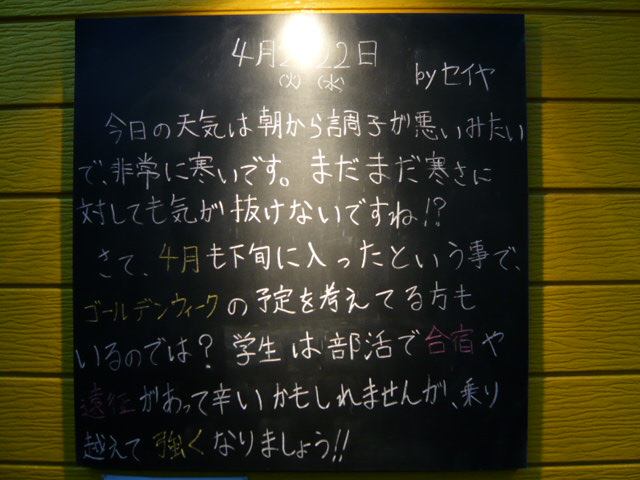 4月2 22日
(火) (水)
byセイヤ
今日の天気は朝から調子が悪いみたい
で、非常に寒いです。まだまだ寒さに
対しても気が抜けないですね!?
さて、4月も下旬に入ったという事で、
ゴールデンウィークの予定を考えてる方も
いるのでは?学生は部活で合宿や
遠征があって辛いかもしれませんが、乗り
越えて強くなりましょう!!